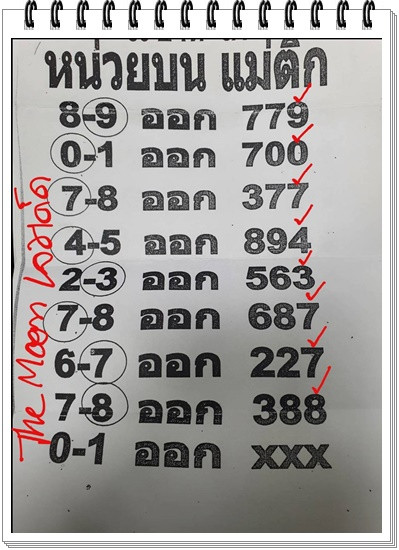 หน่วยบน แม่ติ๊ก
8-9 ออก 779
0-1 ออก 700
7-8 ออก 377
4-5 ออก 894
2-3 ออก 563
7-8 ออก 687
6-7 ออก 227
7-8 ออก 388
0-1 ออก xxx
The Moon